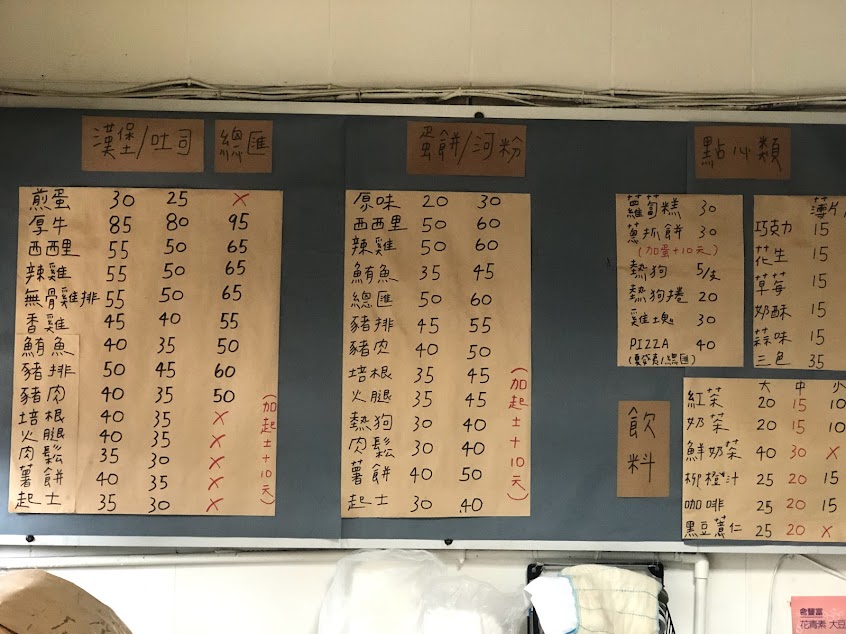 漢堡/吐司 總匯
煎蛋 30 25 ×
厚牛 85 80 95
西西里 55 50 65
辣雞 55 50 65
無骨雞排 55 50 65
香雞 45 40 55
鮪魚 40 35 50
豬排 50 45 60
豬肉 40 35 50
培根 40 35 ×
火腿 40 35 ×
肉鬆 35 30 ×
薯餅 40 35 ×
起士 35 30 ×
(加起士+10元)
蛋餅/河粉
原味 20 30
西西里 50 60
辣雞 50 60
鮪魚 35 45
總匯 50 60
豬排 45 55
豬肉 40 50
培根 35 45
火腿 35 45
熱狗 30 40
肉鬆 30 40
薯餅 40 50
起士 30 40
(加起士+10元)
點心類
蘿蔔糕 30
蔥抓餅 30
(加蛋+10元)
熱狗 5/支
熱狗捲 20
雞塊 30
PIZZA 40
薄片
巧克力 15
花生 15
草莓 15
奶酥 15
蒜味 15
三色 35
飲料
大 中 小
紅茶 20 15 10
奶茶 20 15 10
鮮奶茶 40 30 ×
柳橙汁 25 20 15
咖啡 25 20 15
黑豆薏仁 25 20 ×
花青素 大豆